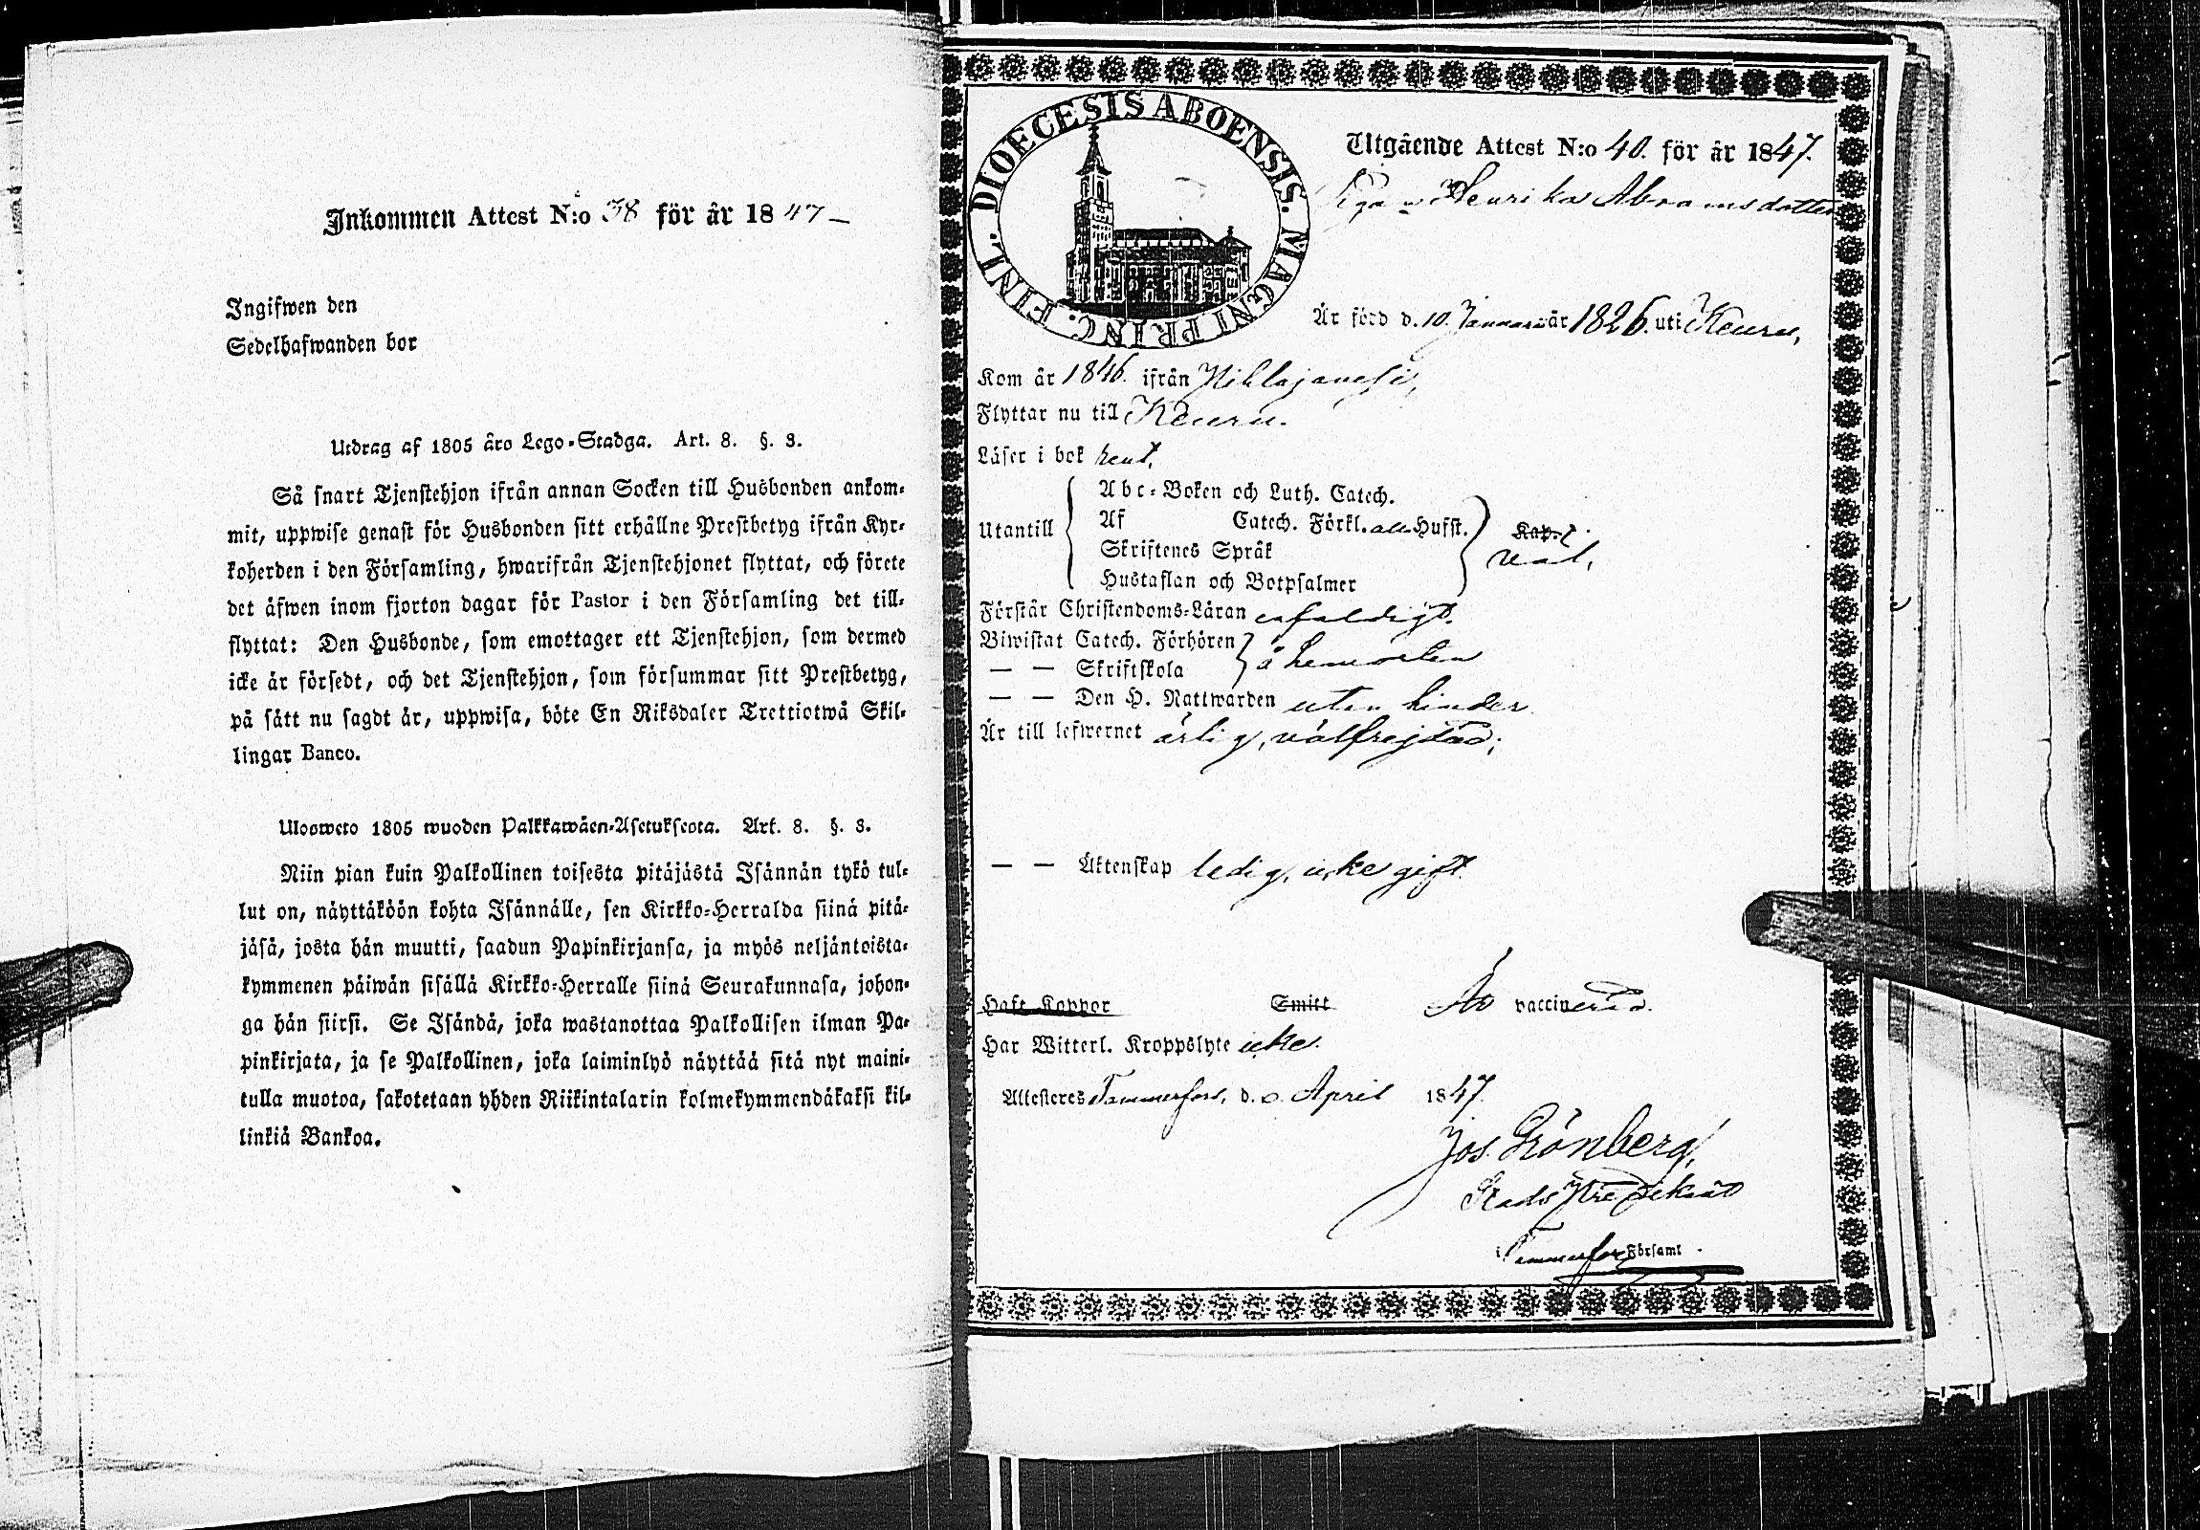 Inkommen Attest N:o 38 för år 1847 –
Ingifwen den
Sedelhafwanden bor
Utdrag af 1805 åro Lego-Stadga. Art. 8. §. 3.
Så snart Tjenstehjon ifrån annan Socken till Husbonden ankom-
mit, uppwise genast för Husbonden sitt erhållne Prestbetyg ifrån Kyr-
koherden i den Församling, hwarifrån Tjenstehjonet flyttat, och förete
det äfwen inom fjorton dagar för Pastor i den Församling det till-
flyttat: Den Husbonde, som emottager ett Tjenstehjon, som dermed
icke är försedt, och det Tjenstehjon, som försummar sitt Prestbetyg,
på sätt nu sagdt är, uppwisa, böte En Riksdaler Trettiotwå Skil-
lingar Banco.
Ulosweto 1805 wuoden Palkkawäen-Asetuksesta. Art. 8. §. 3.
Niin pian kuin Palkollinen toisesta pitäjästä Isännän tykö tul-
lut on, näyttäköön kohta Isännälle, sen Kirkko-Herralda siinä pitä-
jäsä, josta hän muutti, saadun Papinkirjansa, ja myös neljäntoista-
kymmenen päiwän sisällä Kirkko-Herralle siinä Seurakunnasa, johon-
ga hän siirsi. Se Isändä, joka wastanottaa Palkollisen ilman Pa-
pinkirjata, ja se Palkollinen, joka laiminlyö näyttää sitä nyt maini-
tulla muotoa, sakotetaan yhden Riikintalarin kolmekymmendäkaksi kil-
linkiä Bankoa.
DIOECESIS ABOENSIS. MAGNI PRINC. FINL.
Utgående Attest N:o 40. för år 1847.
Pigan Henrika Abramsdotter
Är född d. 10. Januari år 1826. uti Keuru,
Kom år 1846. ifrån
Flyttar nu till Keuru.
Läser i bok rent,
Abc-Boken och Luth. Catech.
Utantill Af Catech. Förkl. alla Hufst. Kap.
Skriftenes Språk väl,
Hustaflan och Botpsalmer
Förstår Christendoms-Läran enfaldigt.
Biwistat Catech. Förhören
— — Skriftskola å hemorten
— — Den H. Nattwarden utan hinder
Är till lefwernet ärlig, välfrejdad;
— — Äktenskap ledig, icke gift.
Haft Koppor Smitt Är vaccinerad.
Har Witterl. Kroppslyte icke.
Attesteres Tammerfors, d. April 1847.
Jos. Grönberg,
Stads Predikant
i Tammerfors Församl.